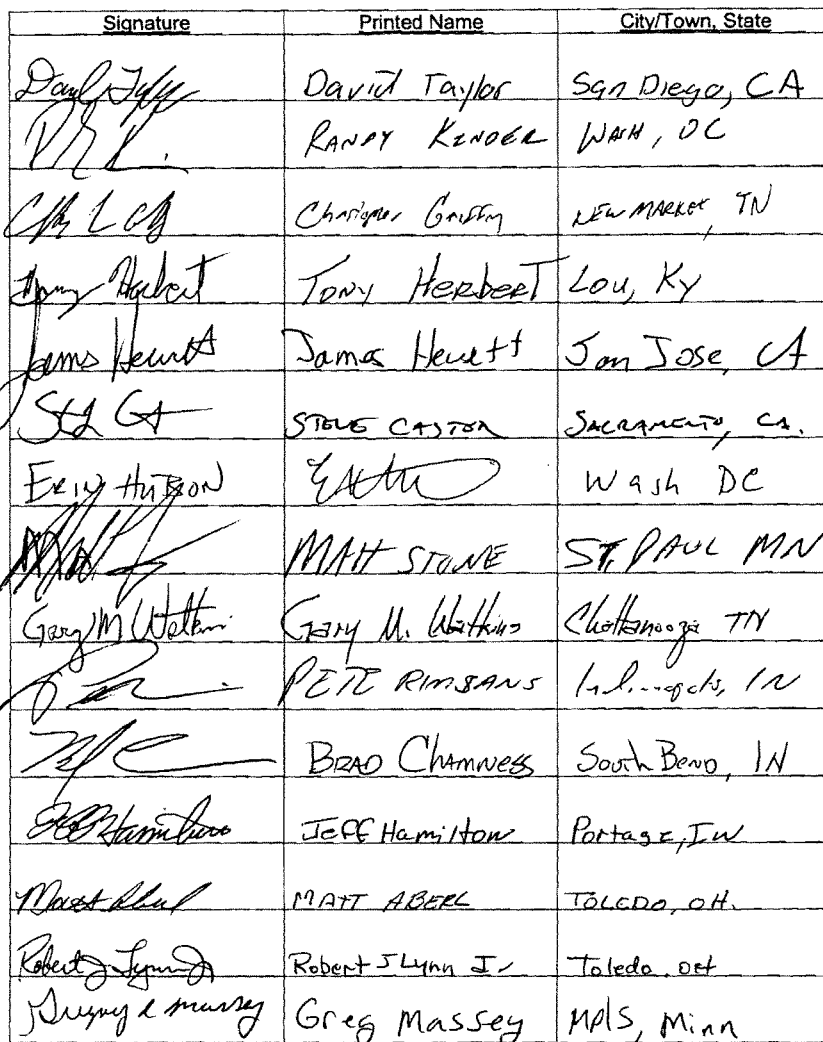 Signature Printed Name City/Town, State
David Taylor San Diego, CA
RANDY KINDER WASH, DC
Christopher Griffin NEW MARKET, TN
Tony Herbert TONY HERBERT LOU, KY
James Hewett James Hewett San Jose, CA
STEVE CASTOR SACRAMENTO, CA.
ERIN HUTSON Wash DC
MATT STONE ST, PAUL MN
Gary M Watkins Gary M. Watkins Chattanooga TN
PETE RIMSANS Indianapolis, IN
BRAD CHAMNESS SOUTH BEND, IN
Jeff Hamilton Jeff Hamilton Portage, IN
Matt Aberl MATT ABERL TOLEDO, OH.
Robert J Lynn Jr Robert J Lynn Jr Toledo, OH
Gregory L Massey Greg Massey MPLS, Minn